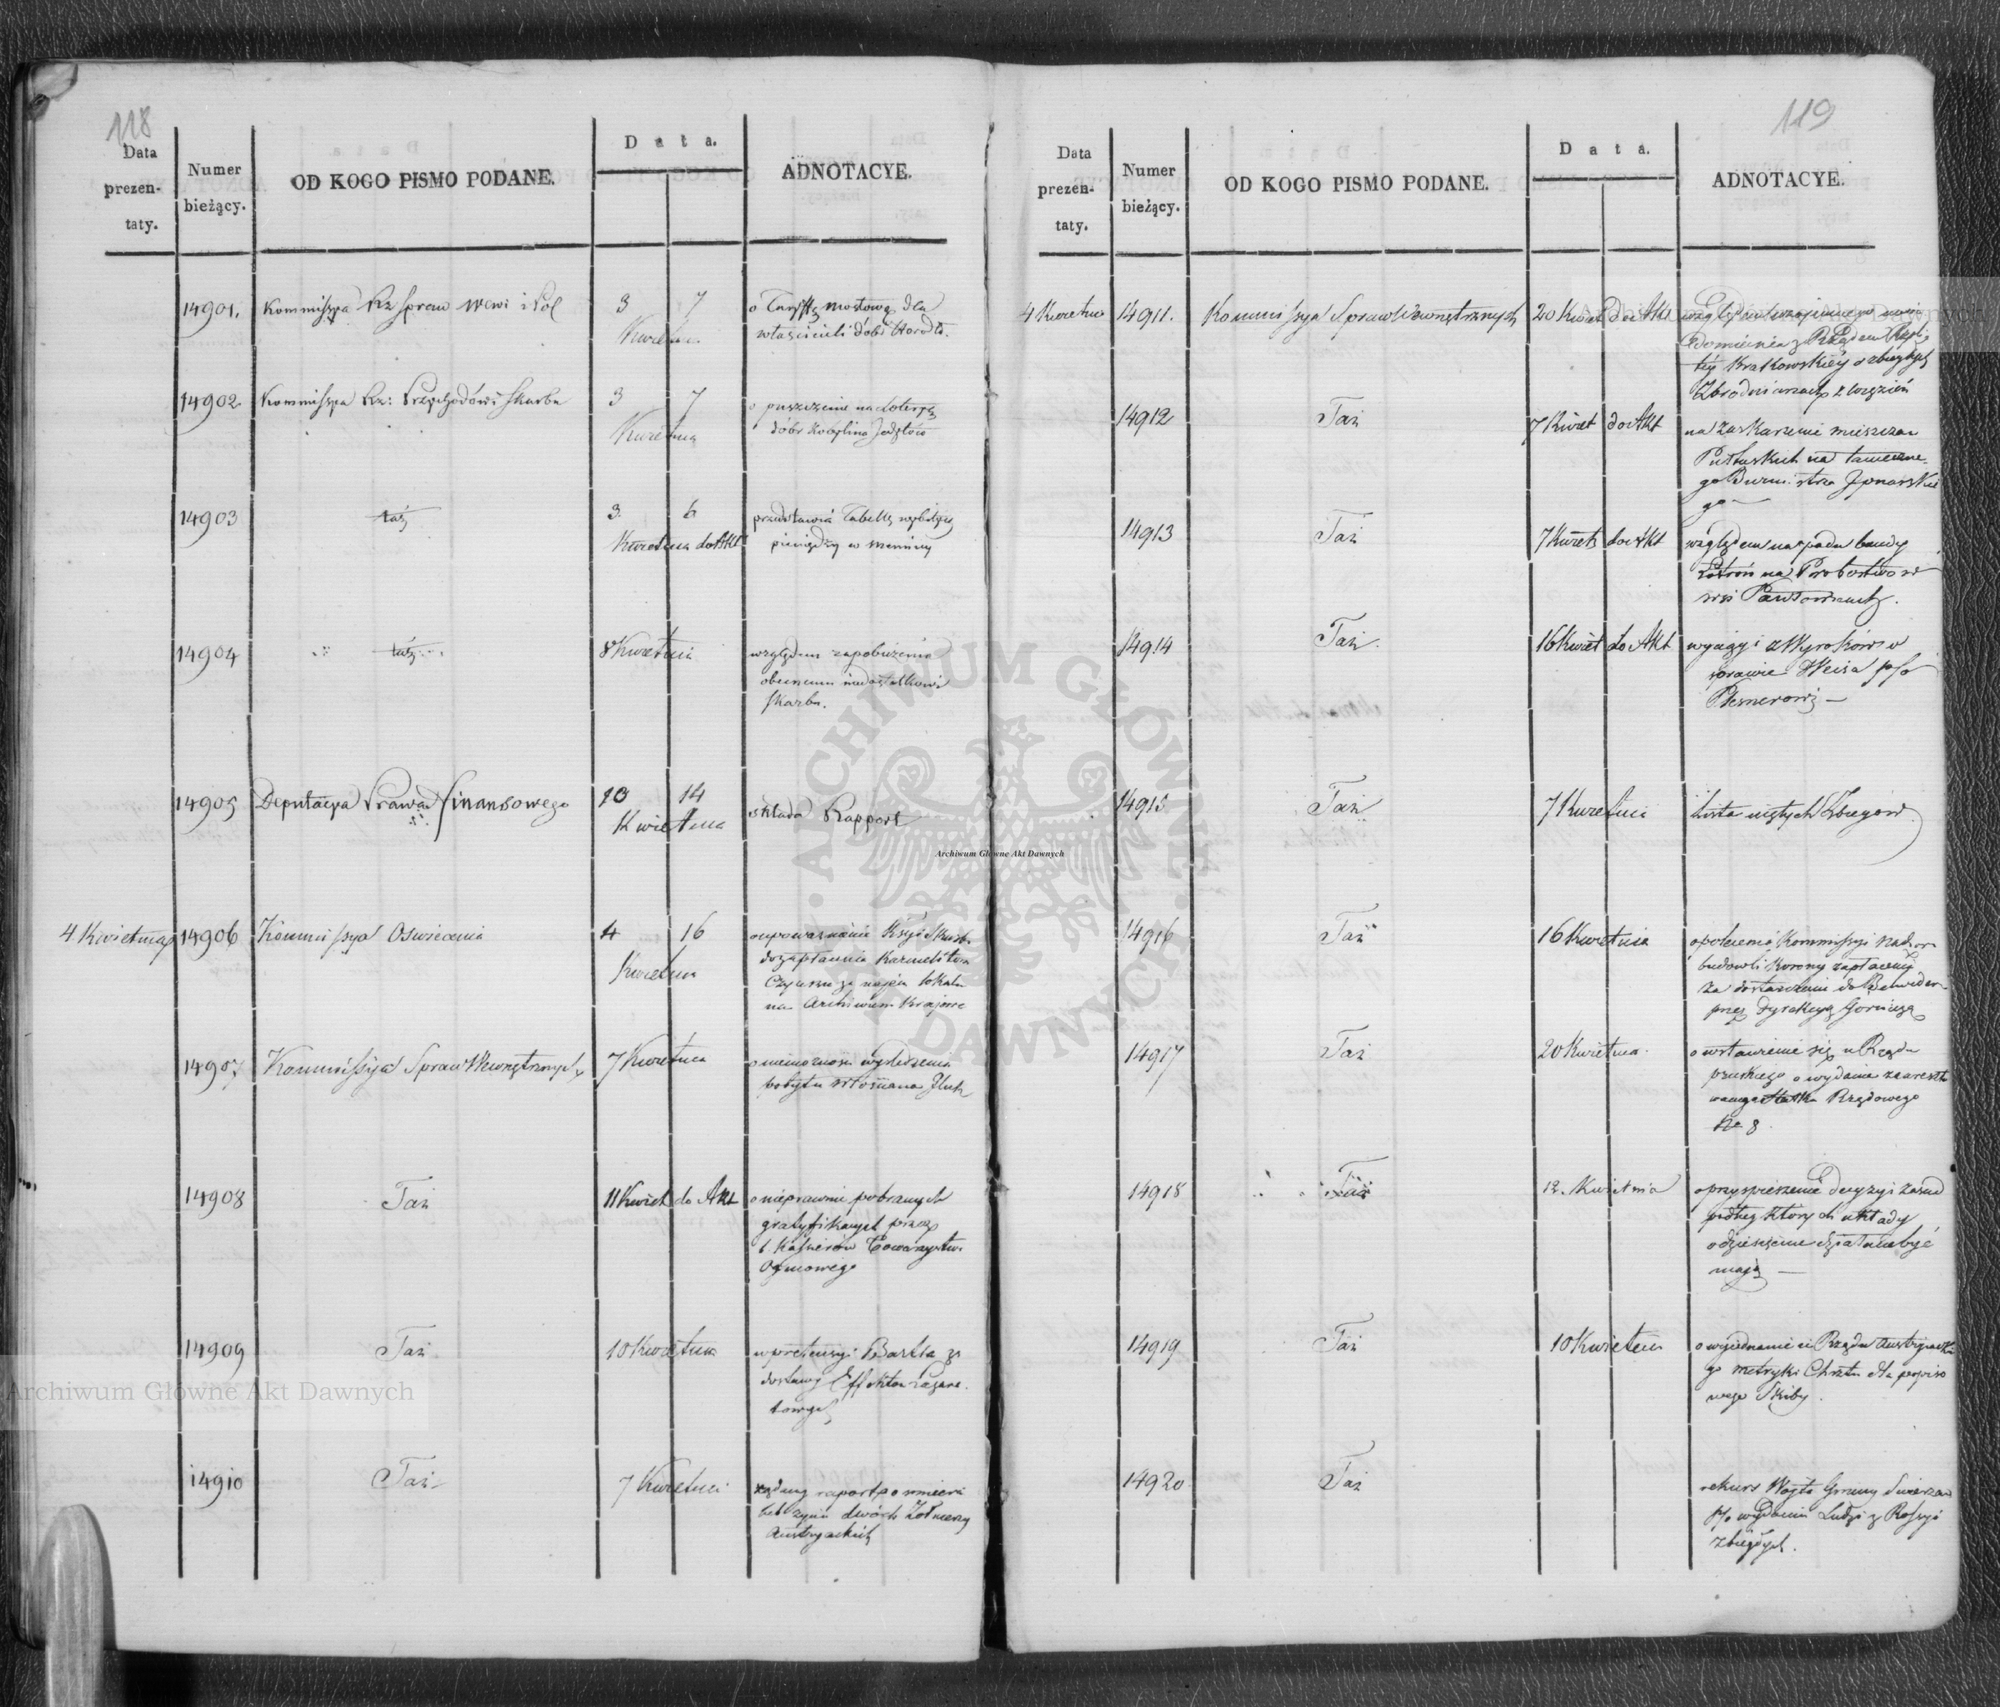 118
Data prezentaty.
Numer bieżący.
OD KOGO PISMO PODANE.
Data.
ADNOTACYE.
14901. Kommissya Rz Spraw Wewn i Pol
3 7 Kwietnia
o Taryffę mostową dla
właścicieli dóbr Horodło.
14902 Kommissya Rz: Przychodów i Skarbu
3 7 Kwietnia
o puszczenie na Loteryą
dóbr
14903 taż
3 6
Kwietnia do Akt
przedstawia Tabellę wybitych
pieniędzy w mennicy
14904 taż
8 Kwietnia
względem zapobieżenia
obecnemu niedostatkowi
Skarbu.
14905 Deputacya Prawa Finansowego
10 14
Kwietnia
składa Rapport
4 Kwietnia 14906 Kommissya Oswiecenia
4 16
Kwietnia
o upoważnienie
do zapłacenia Karmelitom
za najem lokalu
na Archiwum Krajowe
14907 Kommissya Spraw Wewnętrznych
7 Kwietnia
o niemożności wyśledzenia
pobytu włościana
14908 Taż
11 Kwiet do Akt
o nieprawnie pobranych
gratyfikacyach przez
b. Kassierów Towarzystwa
Ogniowego
14909 Taż
10 Kwietnia
w pretensyi za
dostawę Effektów Lazare
towych
14910 Taż
7 Kwietnia
żądany raport o śmierci
lub życiu dwóch Żołnierzy
Austryackich
119
Data prezentaty.
Numer bieżący.
OD KOGO PISMO PODANE.
Data.
ADNOTACYE.
4 Kwietnia 14911. Kommissya Spraw Wewnętrznych
20 Kwiet do Akt
względem wzajemnego uwia
domienia z Rządem Rzpli
téy Krakowskiéy o zbiegłych
Zbrodniarzach z więzień
14912 Taż
7 Kwiet do Akt
na zaskarżenie mieszczan
Pułtuskich na tameczne
go Burmistrza
go
14913 Taż
7 Kwiet do Akt
względem napadu bandy
na Probostwo w
wsi
14914 Taż
16 Kwiet do Akt
wyciągi z Wyroków w
sprawie Weisa p/o
14915 Taż
7 Kwietnia
Lista ujętych Zbiegów
14916 Taż
16 Kwietnia
o polecenie Kommissyi nad
budowli Korony zapłacenia
za dostarczenie do Belweder
przez Dyrekcyą Gorniczą
14917 Taż
20 Kwietnia
o wstawienie się u Rządu
pruskiego o wydanie zaareszto
wanego statku Rządowego
No 8
14918 Taż
12. Kwietnia
o przyspieszenie decyzyi zasad
podług których układy
mają
14919 Taż
10 Kwietnia
o wyiednanie u Rządu Austryackie
go metryki Chrztu dla popiso
wego Skiby.
14920 Taż
rekurs Wójta Gminy
p/o wydanie Ludzi z Rossyi
zbiegłych.
ARCHIWUM GŁÓWNE AKT DAWNYCH
Archiwum Główne Akt Dawnych
Archiwum Główne Akt Dawnych
Archiwum Główne Akt Dawnych